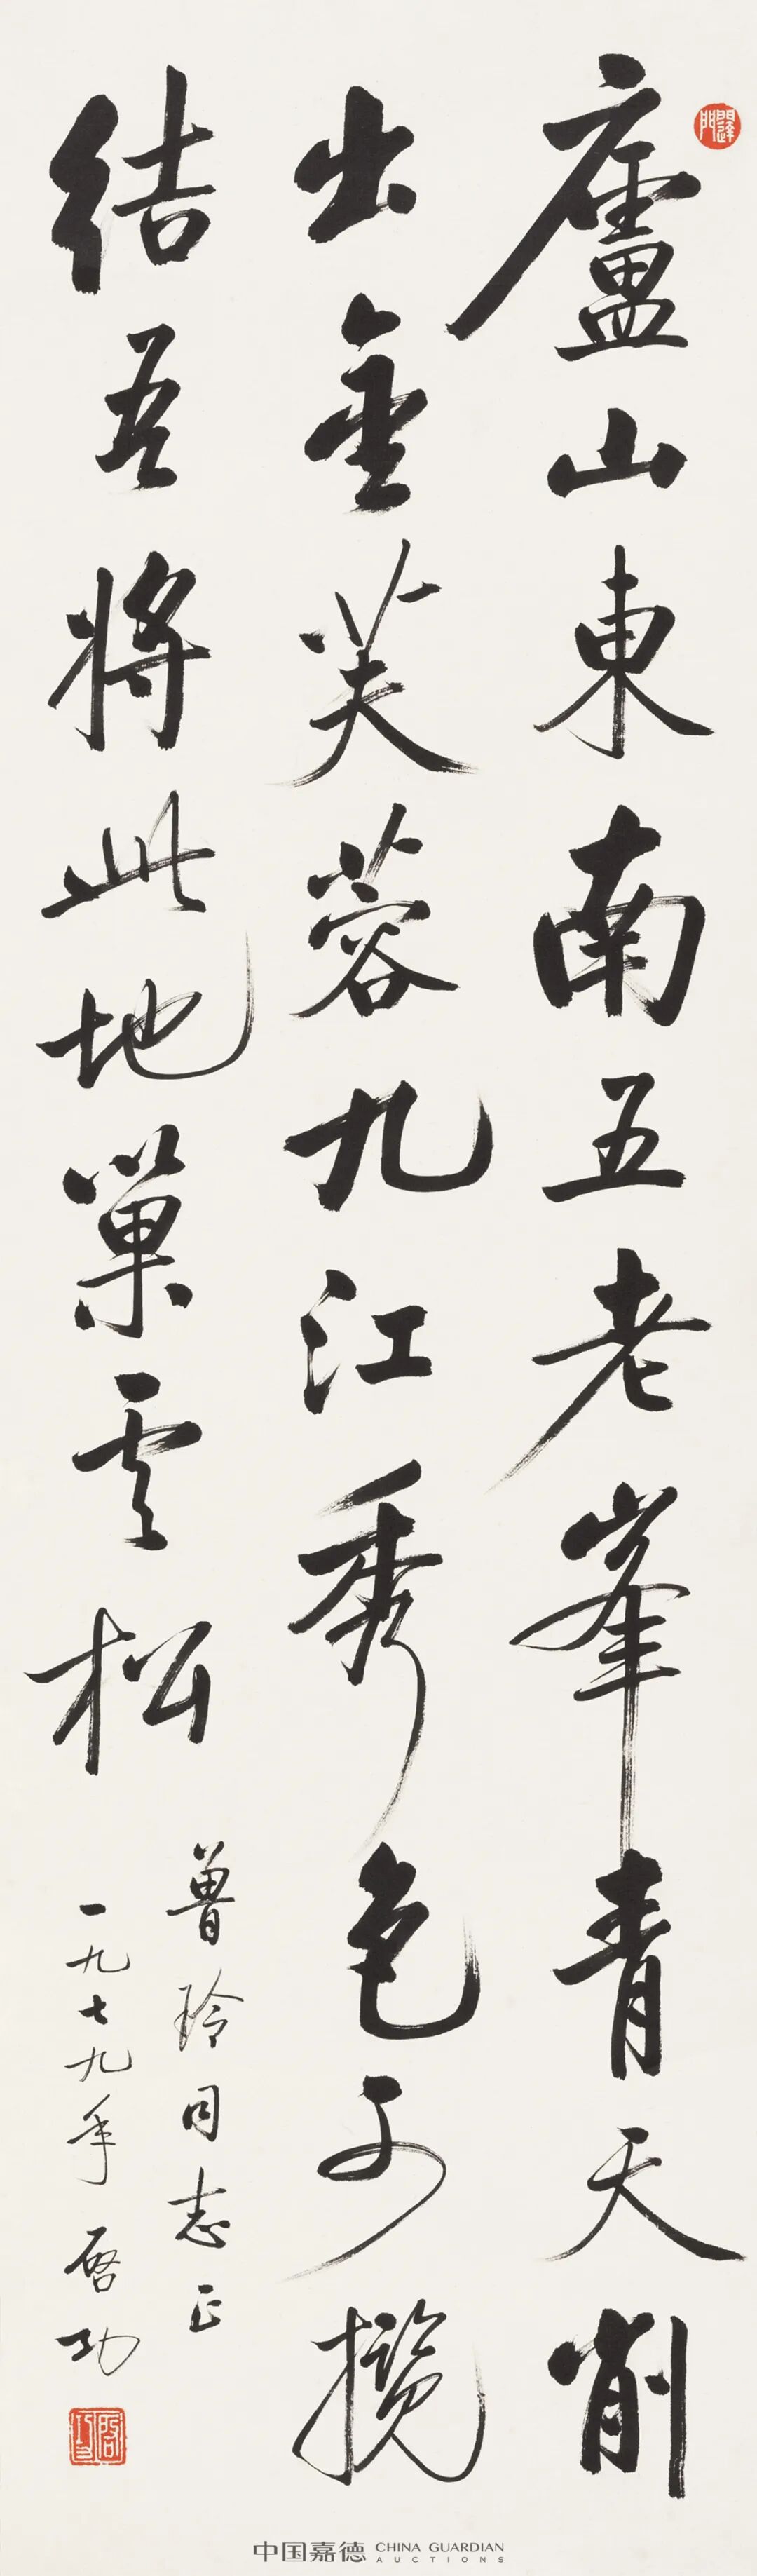 廬山東南五老峯青天削
出金芙蓉九江秀色可攬
結吾將此地巢雲松
曾玲同志正
一九七九年 啓功
啟功
中国嘉德 CHINA GUARDIAN
AUCTIONS